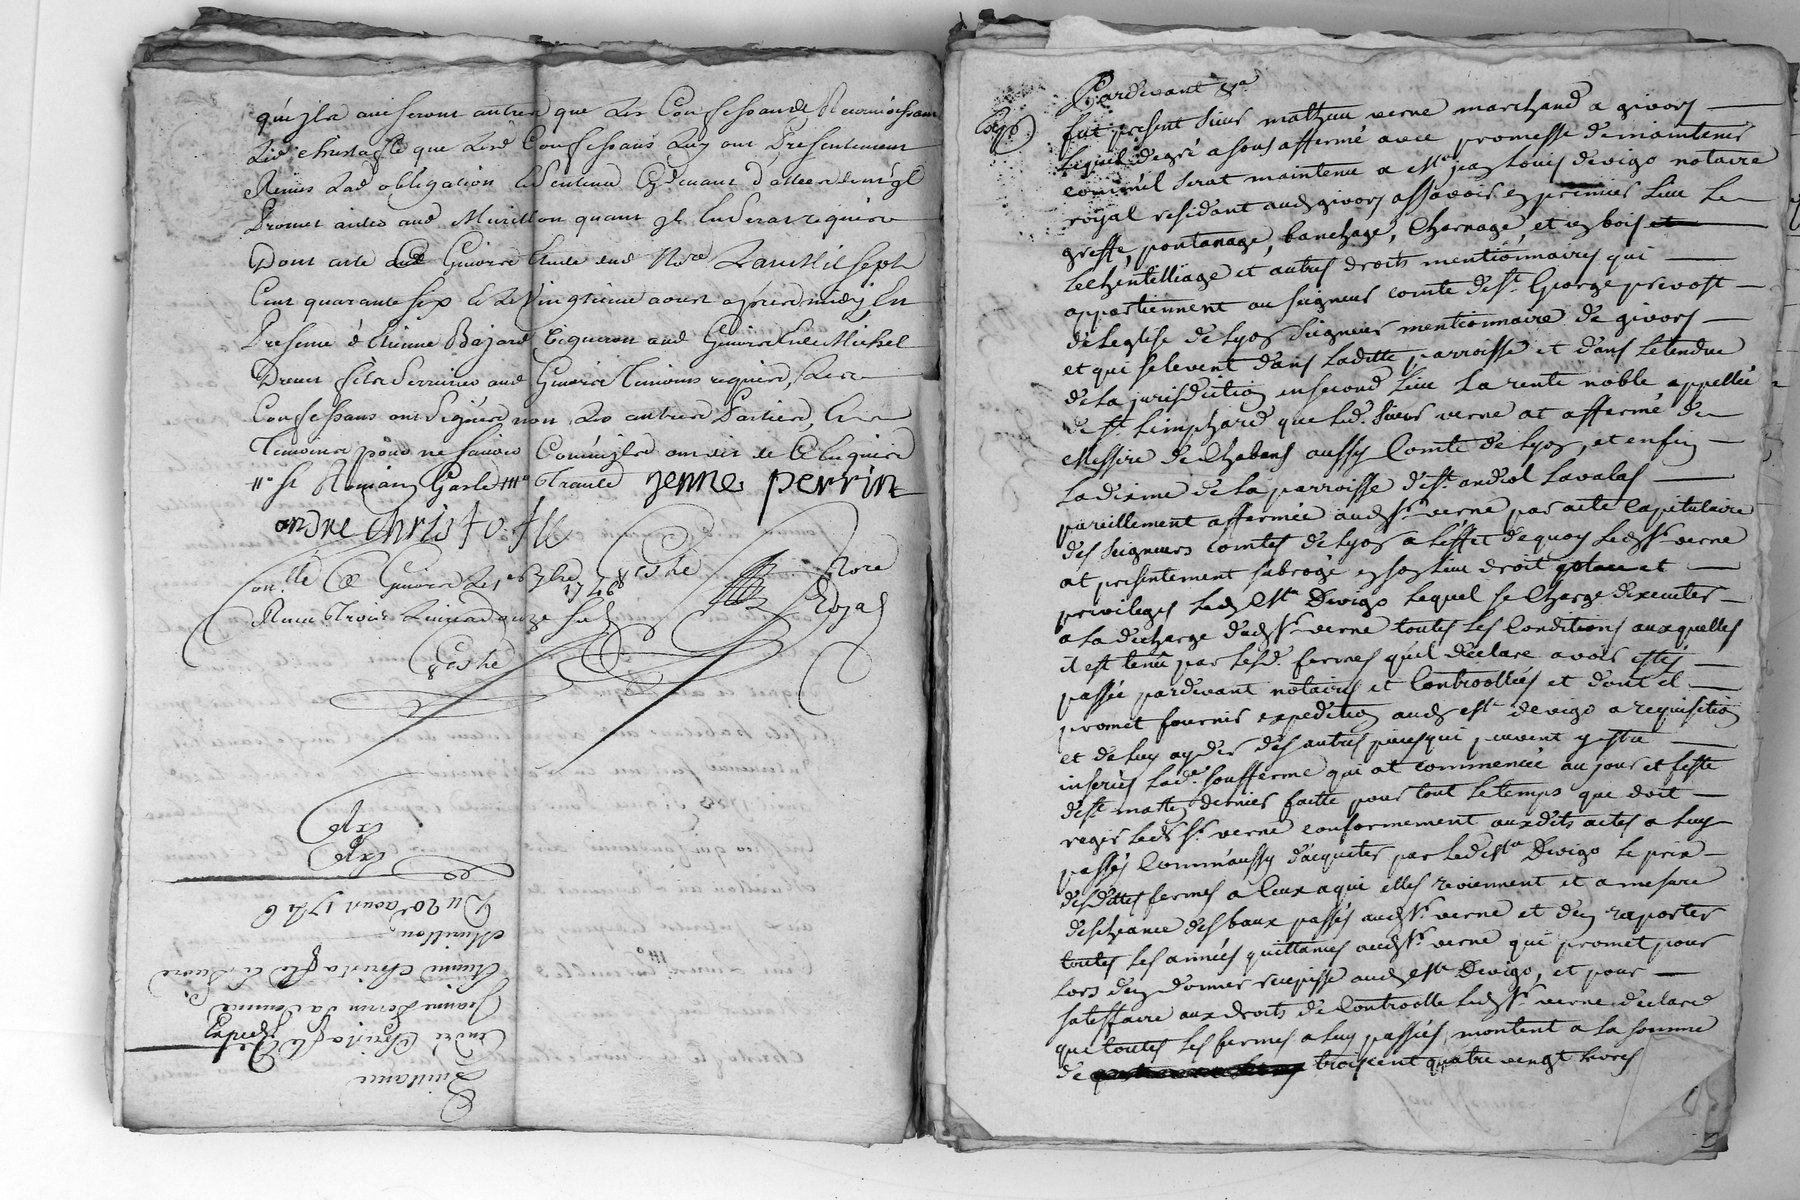 qu'ils auseront autres que Les Confessants Reconnoissant
Led christofle que Lesd Confessans Luy ont Presentement
Remis Lad obligation
Promet aud Murillon quant il En Serat requis
Dont acte aud Givors Etude dud No.re L'an Mil Sept
Cent quarante Six Et Le Vingtieme aoust apres midy, En
Presence d'Etienne Bajard Vigneron aud Givors Et de Michel
fils Serrurier aud Givors Temoins requis, Les
Confessans ont Signés non Les autres Parties, Et
Temoins pour ne Sçavoir Comm'ils ont dit de Ce Enquis
jenne perrin
andre christofle
Con.llé a Givors Le 1er 7bre 1746
Reçu Trois Livres douze Sols
Royal
Exp
Exp
Du 20e aoust 1746
Murillon
Etienne Christofle
Jeanne Perrin Sa femme
André Christofle
Exped
Quittance
Pardevant &a
Exp.
fut present sieur mathieu verne marchand a givors
Lequel de gré a sous affermé avec promesse de maintenir
comm'il serat maintenu a Me jean Louis devigo notaire
royal residant aud givors assavoir en premier Lieu Le
greffe, pontanage, banchage, Charnage, et en bois
Lechantelliage et autres droits mentionnaires qui
appartiennent au seigneur comte de St. George prevost
de Leglise de Lyon Seigneur mentionnaire de givors
et qui se levent dans Laditte parroisse et dans Letendue
de La jurisdiction en second Lieu La rente noble appellée
de St. que led. sieur verne at affermé de
Messire de Chabans aussy Comte de Lyon, et enfin
La dixme de La parroisse de St. andiol Lavalas
pareillement affermée aud Sr. verne par acte Capitulaire
des seigneurs comtes de Lyon a Leffet de quoy Led Sr. verne
at presentement subrogé en son Lieu droit place et
privileges Led Me Devigo Lequel se Charge d'executer
a La decharge dud Sr. verne toutes Les Conditions auxquelles
il est tenu par Lesd. fermes quil declare avoir estés
passée pardevant notaires et Controollées et dont il
promet fournir expedition aud Me devigo a requisition
et de Luy ayder des autres pieces qui peuvent y estre
inseriés Lad. soufferme qui at commencée au jour et feste
de St. martin dernier faitte pour tout Letemps que doit
reger Led Sr. verne conformement auxdits actes a Luy
passés Comm'aussy d'acquiter par Ledit Me Devigo Le prix
desdittes fermes a Ceux a qui elles reviennent et a mesure
descheance des baux passés aud Sr. verne et d'en raporter
toutes Les années quittances aud Sr. verne qui promet pour
Lors d'en donner recepisse aud Me Devigo, et pour
satisfaire aux droits de Controolle Led Sr. verne declare
que toutes Les fermes a Luy passées, montent a la somme
de troiscent quatre vengt livres